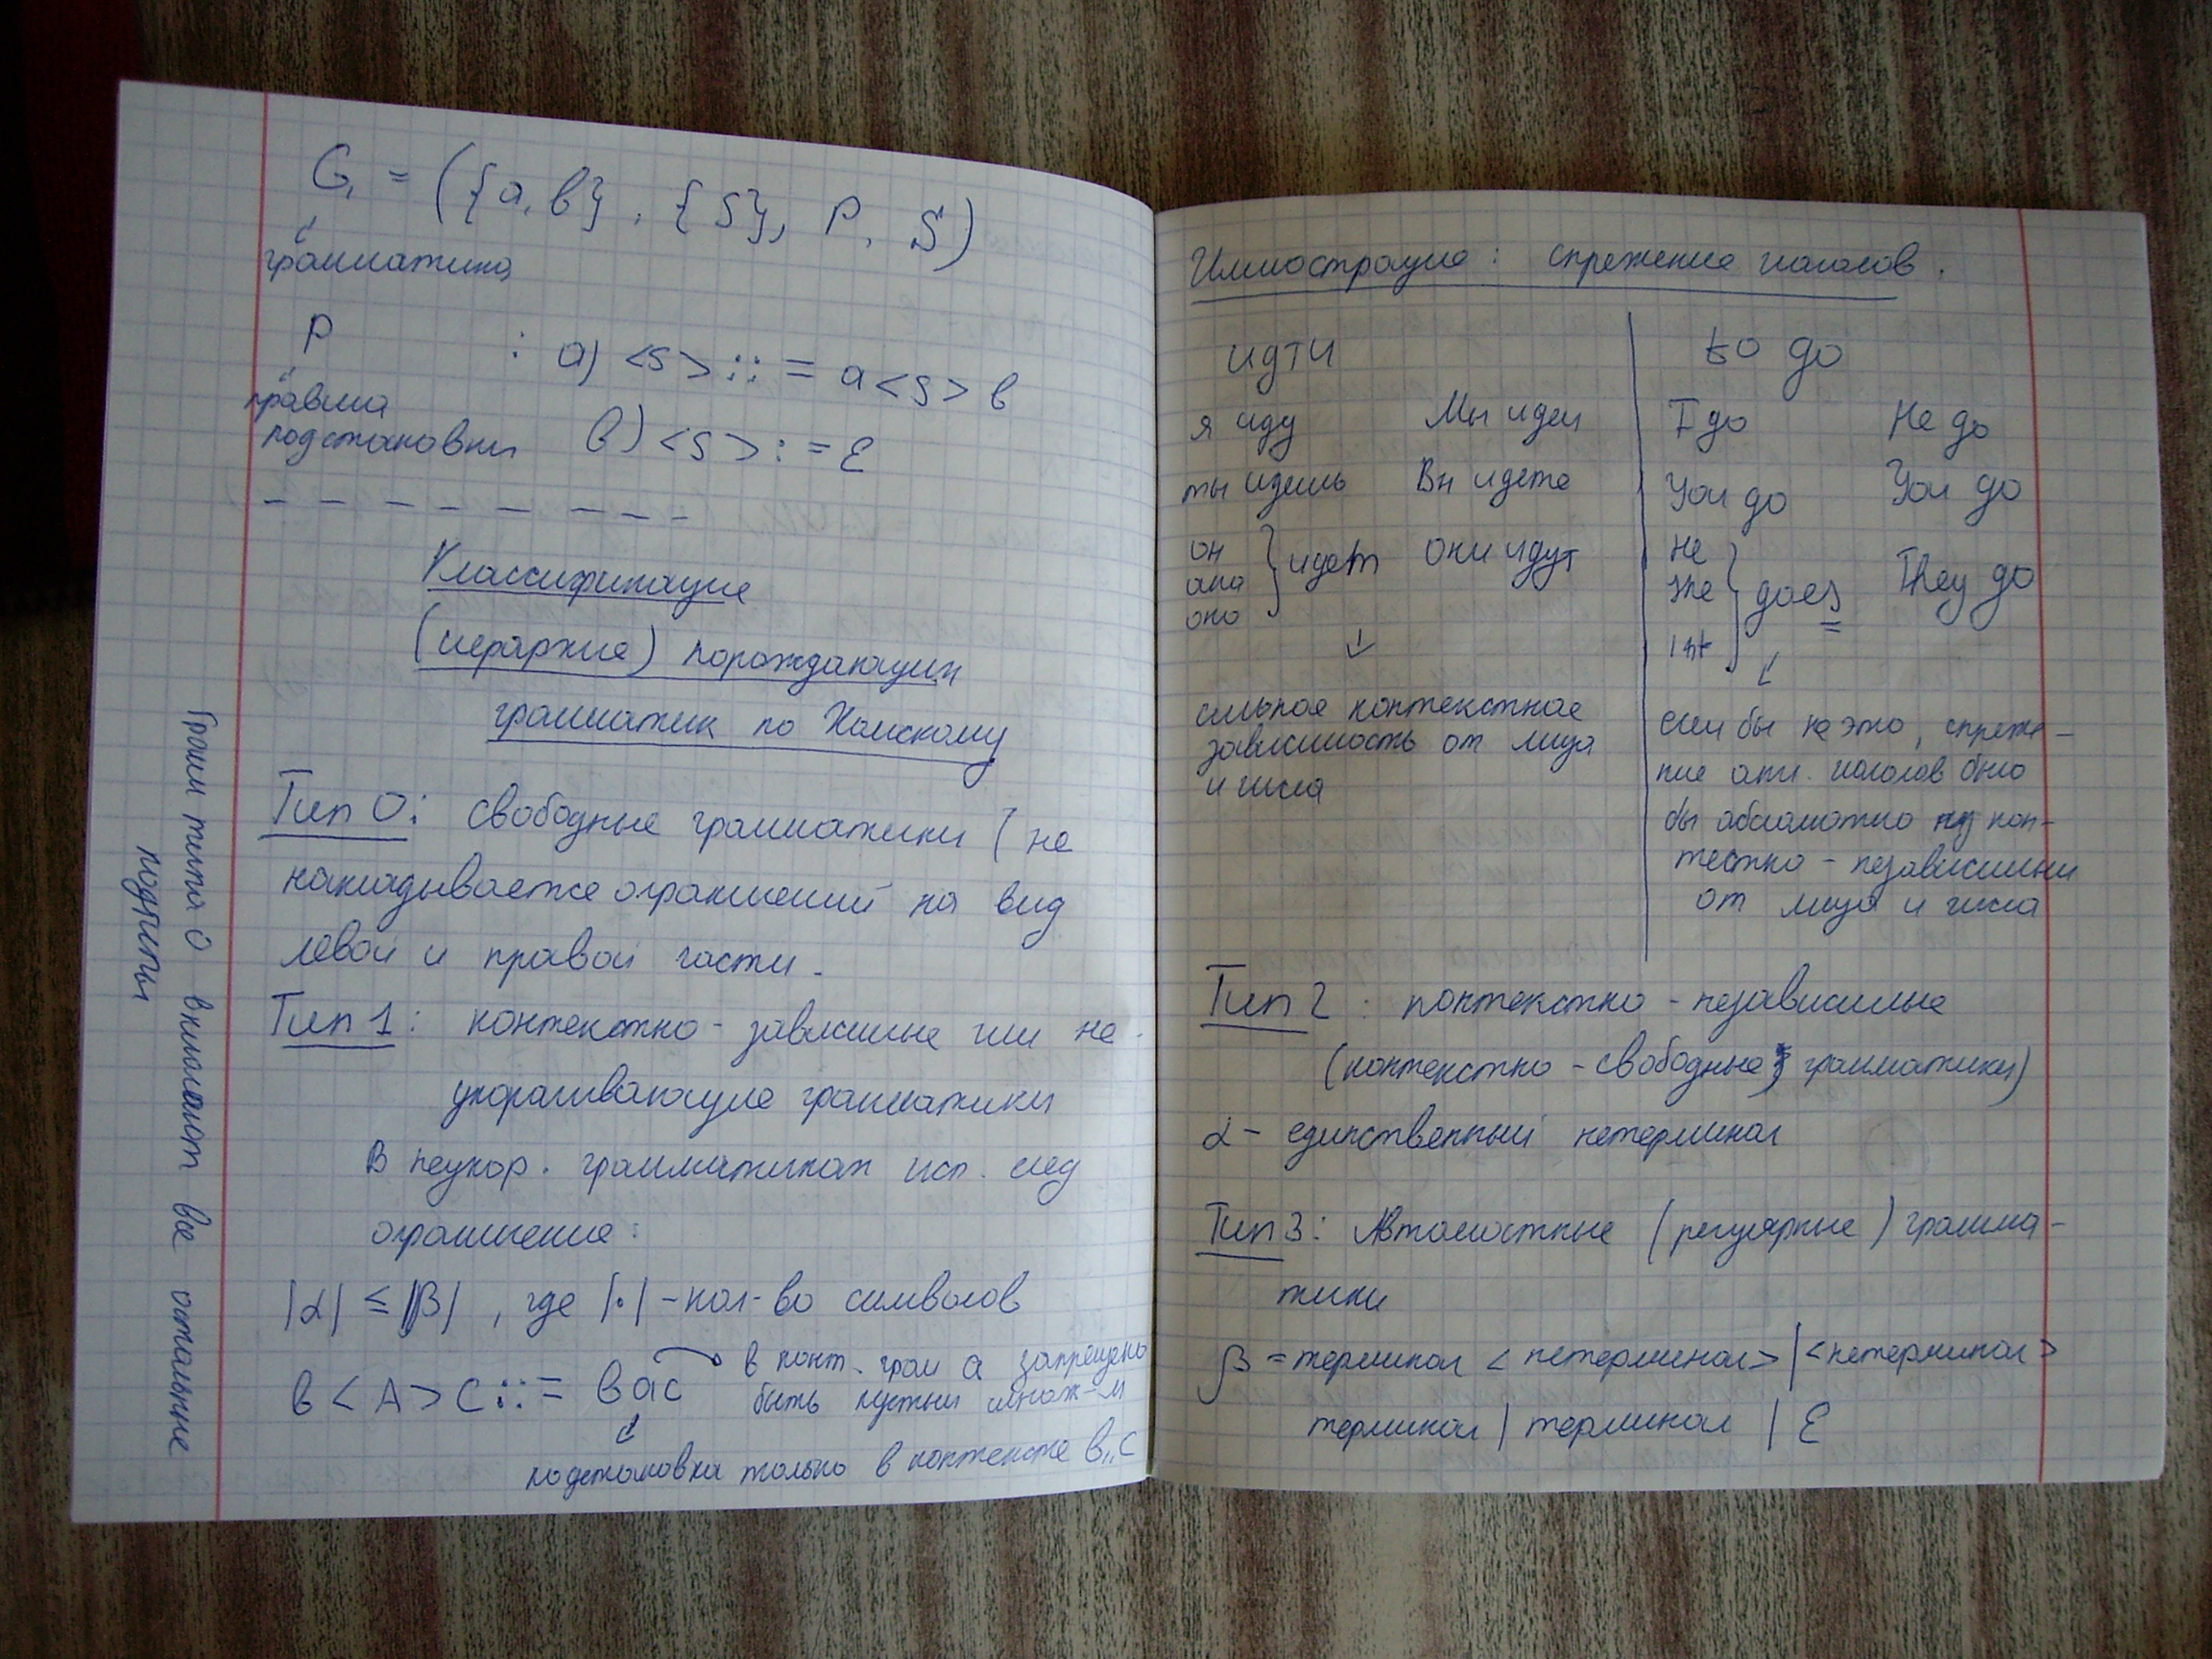 G₁ = ({a, b}, {S}, P, S)
грамматика
P : a) <S> ::= a<S>b
правила
подстановки б) <S> := ε
Классификация
(иерархия) порождающих
грамматик по Хомскому
Тип 0: свободные грамматики (не
накладывается ограничений на вид
левой и правой части.
Тип 1: контекстно - зависимые или не-
укорачивающие грамматики
В неукор. грамматиках исп. след
ограничение:
|α| ≤ |β|, где |·| - кол-во символов
в <A> C ::= вac в конт. грам a запрещено
быть пустым множ-м
подстановка только в контексте в,,C
Грам типа 0 включают все остальные
подтипы
Иллюстрация: спряжение глаголов.
идти to do
я иду Мы идем I do We do
ты идешь Вы идете You do You do
он
она идет они идут
оно
He
She does They do
Int
сильная контекстная
зависимость от лица
и числа
если бы не это, спряже-
ние анг. глаголов было
бы абсолютно кон-
тестно - независимы
от лица и числа
Тип 2: контекстно - независимые
(контекстно - свободные грамматики)
α - единственный нетерминал
Тип 3: Автоматные (регулярные) грамма-
тики
β = терминал <нетерминал> | <нетерминал>
терминал | терминал | ε